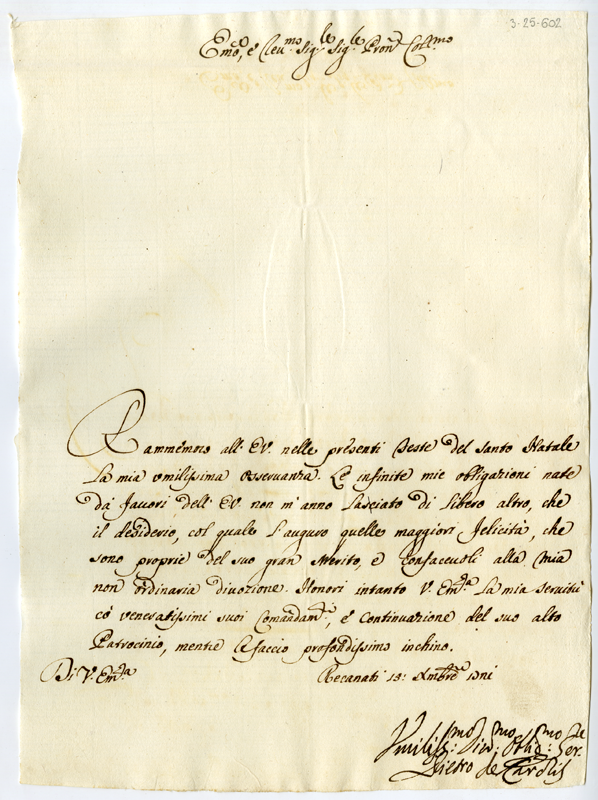 3-25-602
Em̃o, e Rev.mo Sig.re Sig.re Pron.e Coll.mo
Rammemoro all' E.V. nelle presenti Feste del Santo Natale
la mia umilissima osservanza. Le infinite mie obligazioni nate
da' favori dell' E.V. non m'anno lasciato di libero altro, che
il desiderio, col quale l'auguro quelle maggiori felicità, che
sono proprie del suo gran Merito, e confacevoli alla mia
non ordinaria divozione. Honori intanto V. Em.za la mia servitù
co' veneratissimi suoi Comandam.ti, e continuazione del suo alto
Patrocinio, mentre le faccio profondissimo inchino.
Di V. Em.za Recanati 15: Xmbre
Umiliss.mo: Div.mo Oblig.mo: Ser.re
Pietro de Carolis